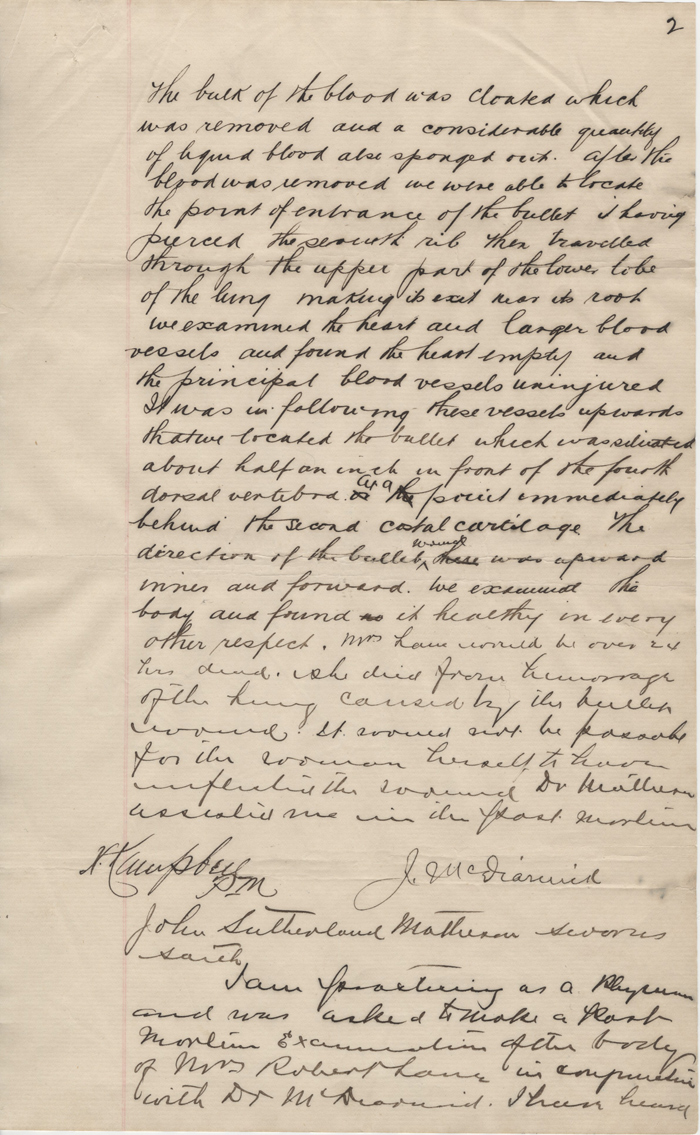 2
The bulk of the blood was cloated which
was removed and a considerable quantity
of liquid blood also sponged out. After the
blood was removed we were able to locate
the point of entrance of the bullet i having
pierced the seventh rib then travelled
through the upper part of the lower lobe
of the lung making its exit near its root
we examined the heart and larger blood
vessels and found the heart empty and
the principal blood vessels uninjured
It was in following these vessels upwards
that we located the bullet which was situated
about half an inch in front of the fourth
dorsal vertebra. at a point immediately
behind the second costal cartilage The
direction of the bullet wound was upward
inner and forward. We examined the
body and found it healthy in every
other respect. Mrs Lane would be over 24
hrs dead. She died from hemorrage
of the lung caused by the bullet
wound. It would not be possable
for the woman herself to have
inflicted the wound Dr Matheson
assisted me in the post mortem
J. McDiarmid
Campbell
PM
John Sutherland Matheson sworn
saith
I am practicing as a Physician
and was asked to make a Post
Mortem Examination of the body
of Mrs Robert Lane in conjunction
with Dr McDiarmid. I have heard